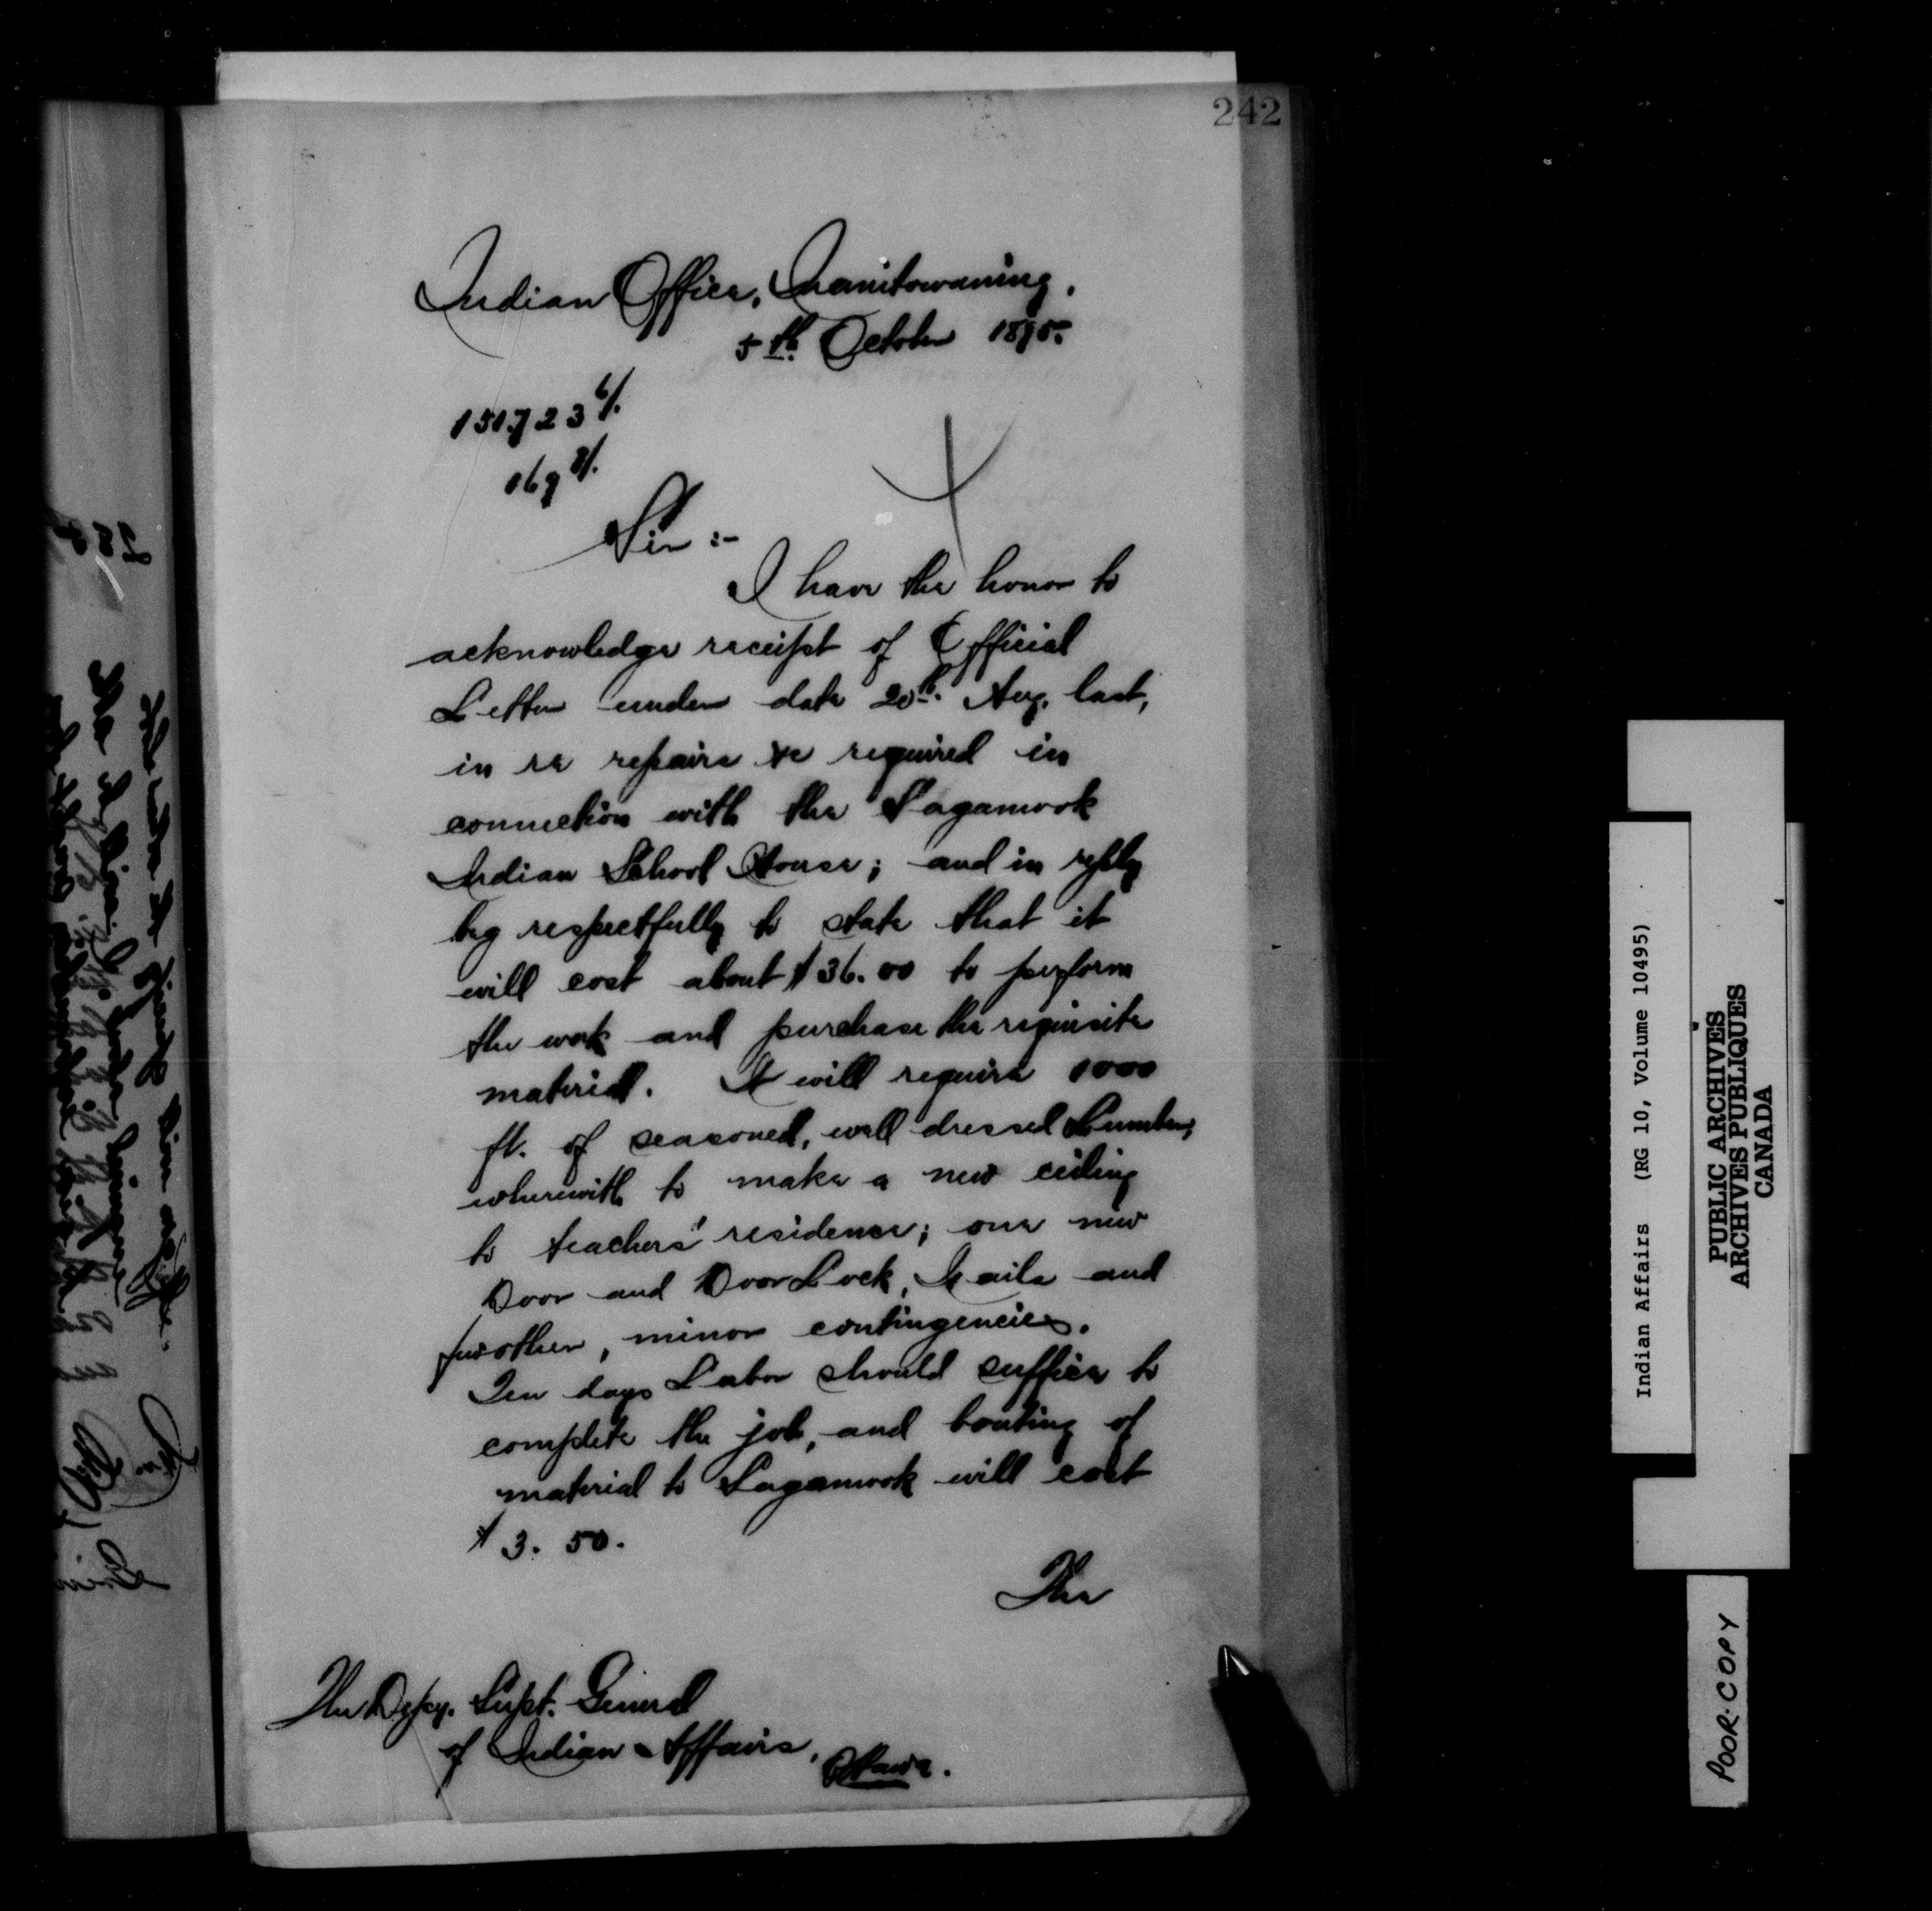 242
Indian Office, Manitowaning,
5th. October 1895.
151,723
Sir :-
I have the honor to
acknowledge receipt of Official
Letter under date 20th. Aug. last,
in re repairs &c required in
connection with the Sagamook
Indian School House; and in reply
beg respectfully to state that it
will cost about $36.00 to perform
the work and purchase the requisite
material. It will require 1000
ft. of seasoned, well dressed Lumber,
wherewith to make a new ceiling
to teachers' residence; one new
Door and Door Lock, Nails and
further, minor contingencies.
Ten days Labor should suffice to
complete the job, and boating of
material to Sagamook will cost
$3. 50.
The
The Depy. Supt. General
of Indian Affairs,
Ottawa.
Indian Affairs (RG 10, Volume 10495)
PUBLIC ARCHIVES
ARCHIVES PUBLIQUES
CANADA
POOR COPY